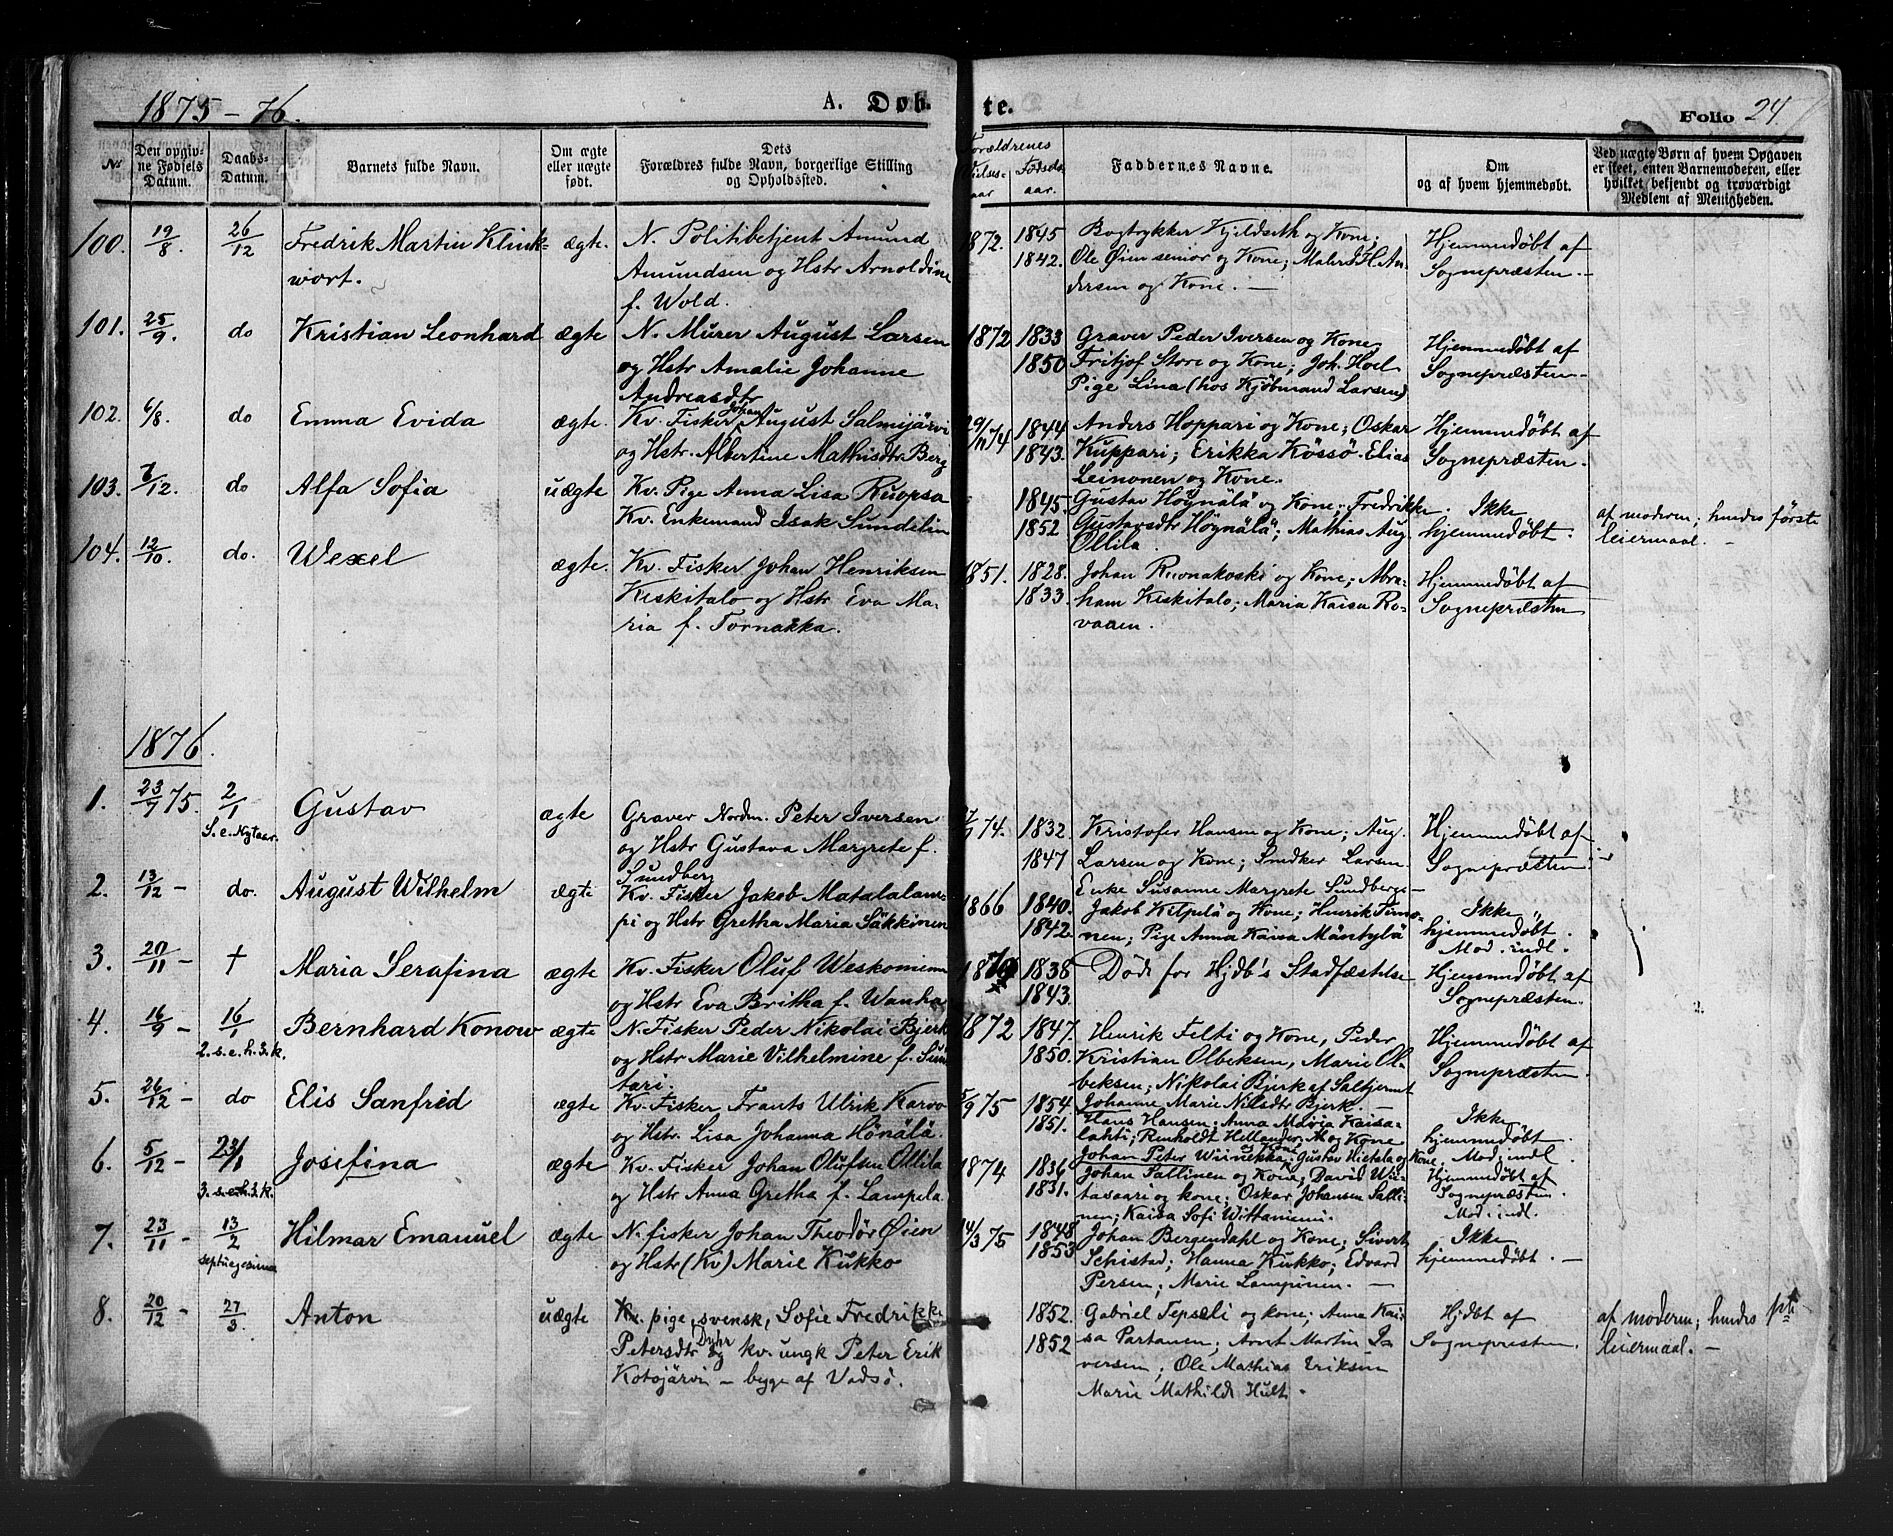 1875-76.
A. Døb-
te.
Folio 24.
No
Den opgiv-
ne Fødsels
Datum.
Daabs-
Datum.
Barnets fulde Navn.
Om ægte
eller uægte
født.
Dets
Forældres fulde Navn, borgerlige Stilling
og Opholdssted.
Forældrenes
Fødsels-
aar.
Faddernes Navne.
Om
og af hvem hjemmedøbt.
Ved uægte Børn af hvem Opgaven
er skeet, enten Barnemoderen, eller
hvilket bekjendt og troværdigt
Medlem af Menigheden.
100. 19/8. 26/12 Fredrik Martin Klink- ægte. N. Politibetjent Amund 1872. 1845 Bogtrykker Kjeldseth og Kone; Hjemmedøbt af
wort. Amundsen og Hstr Arnoldine 1842. Ole Øien senior og Kone; Maler H. An- Sognepræsten.
f. Wold. dersen og Kone. —
101. 25/9. do Kristian Leonhard ægte N. Murer August Larsen 1872 1833 Graver Peder Iversen og Kone Hjemmedøbt af
og Hstr Amalie Johanne 1850 Fritjof Store og Kone; Joh. Hoel Sognepræsten.
Andreasdtr Pige Lina (hos Kjøbmand Larsen)
102. 6/8. do Emma Evida ægte. Kv. Fisker Johan August Salmijärvi 1844 Anders Hoppari og Kone; Oskar Hjemmedøbt af
og Hstr. Albertine Mathisdtr Berg 1843. Kuppari; Erikka Kössö. Elias Sognepræsten.
Leinonen og Kone.
103. 7/12. do Alfa Sofia uægte Kv. Pige Anna Lisa Ruopsa 1845. Gustav Högnälä og Kone; Fredrikke Ikke af moderen; hendes første
Kv. Enkemand Isak Sundelin 1852 Gustavsdtr Högnälä; Mathias Aug. hjemmedøbt. leiermaal. —
Ollila.
104. 12/10. do. Wexel ægte. Kv. Fisker Johan Henriksen 1851. 1828. Johan Ruonakoski og Kone; Abra- Hjemmedøbt af
Keskitalo og Hstr Eva Ma- 1833. ham Keskitalo; Maria Kaisa Ro- Sognepræsten
ria f. Tornakka. vaanen.
1876.
1. 23/7 75. 2/1 Gustav ægte Graver Nordm. Peter Iversen 74. 1832. Kristofer Hansen og Kone; Aug. Hjemmedøbt af
S.e.Nytaar. og Hstr Gustava Margrete f. 1847 Larsen og Kone; Snedker Larsen. Sognepræsten.
Sundberg Enke Susanne Margrete Sundberg.
2. 13/12 - do. August Wilhelm ægte Kv. Fisker Jakob Matalalam- 1866 1840. Jakob Kelpelä og Kone; Henrik Timo- Ikke
pi og Hstr Gretha Maria Säkkinen 1842. nen; Pige Anna Kaisa Mäntylä hjemmedøbt.
Mod. indl.
3. 20/11 - † Maria Serafina ægte Kv. Fisker Oluf Weskoniemi 1838 Døde før Hjdb's Stadfæstelse Hjemmedøbt af
og Hstr Eva Britha f. Wanha 1843. Sognepræsten.
4. 16/9 - 16/1 Bernhard Konow ægte N. Fisker Peder Nikolai Bjerk 1872 1847. Henrik Felti og Kone, Peder Hjemmedøbt af
2.s.e.h.3.k. og Hstr Marie Vilhelmine f. Sun- 1850. Kristian Olbeksen, Marie Ol- Sognepræsten.
tari. beksen; Nikolai Bjerk af Saltjernet
Johanne Marie Nilsdtr Bjerk. —
5. 26/12 - do Elis Sanfred ægte Kv. Fisker Frants Ulrik Karvo 5/9 75 1854. Hans Hansen; Anna Maria Kaisa- Ikke
og Hstr. Lisa Johanna Hönälä. 1851. lahti; Renholdt Hellander, M. og Kone hjemmedøbt.
Johan Peter Wiinikka og Kone; Gustav Hietala og Kone; Mod. indl.
6. 5/12 - 23/1 Josefina ægte Kv. Fisker Johan Olufsen Ollila 1874 1836 Johan Pallinen og Kone, David Wii- Hjemmedøbt af
3.s.e.h.3.k. og Hstr Anna Gretha f. Lampela 1831. tasaari og kone; Oskar Johansen Salli- Sognepræsten
nen; Kaisa Sofi Wittaniemi. Mod. indl.
7. 23/11 - 13/2 Hilmar Emanuel ægte N. fisker Johan Theodór Øien 14/3 75 1848 Johan Bergendahl og Kone; Sivert Ikke
septuagesima og Hstr (Kv) Marie Kukko 1853 Schistad; Hanna Kukko; Edvard hjemmedøbt. —
Persen; Marie Lampinen. —
8. 20/12 - 27/3 Anton uægte pige, svensk, Sofie Fredrikke 1852. Gabriel Tepseli og kone; Anna Kai- Hjdbt af af moderen; hendes
Petersdtr Dyhr og kv. ungk Peter Erik 1852 sa Partanen; Arnt Martin I- Sognepresten. leiermaal. —
Kotojärvi - begge af Vadsø. versen, Ole Mathias Eriksen
Marie Mathilde Hulti.